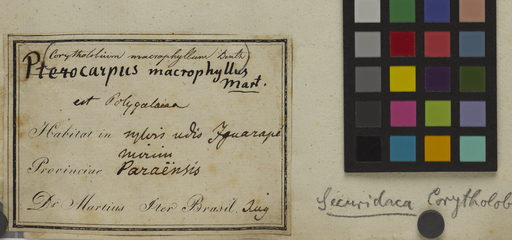 (Corytholobium macrophyllum Benth)
Pterocarpus macrophyllus
Mart.
est Polygalacea
Habitat in sylvis udis Iguarapé
mirim
Provinciae Paraënsis
Dr. Martius Iter Brasil. Aug
Securidaca Corytholob